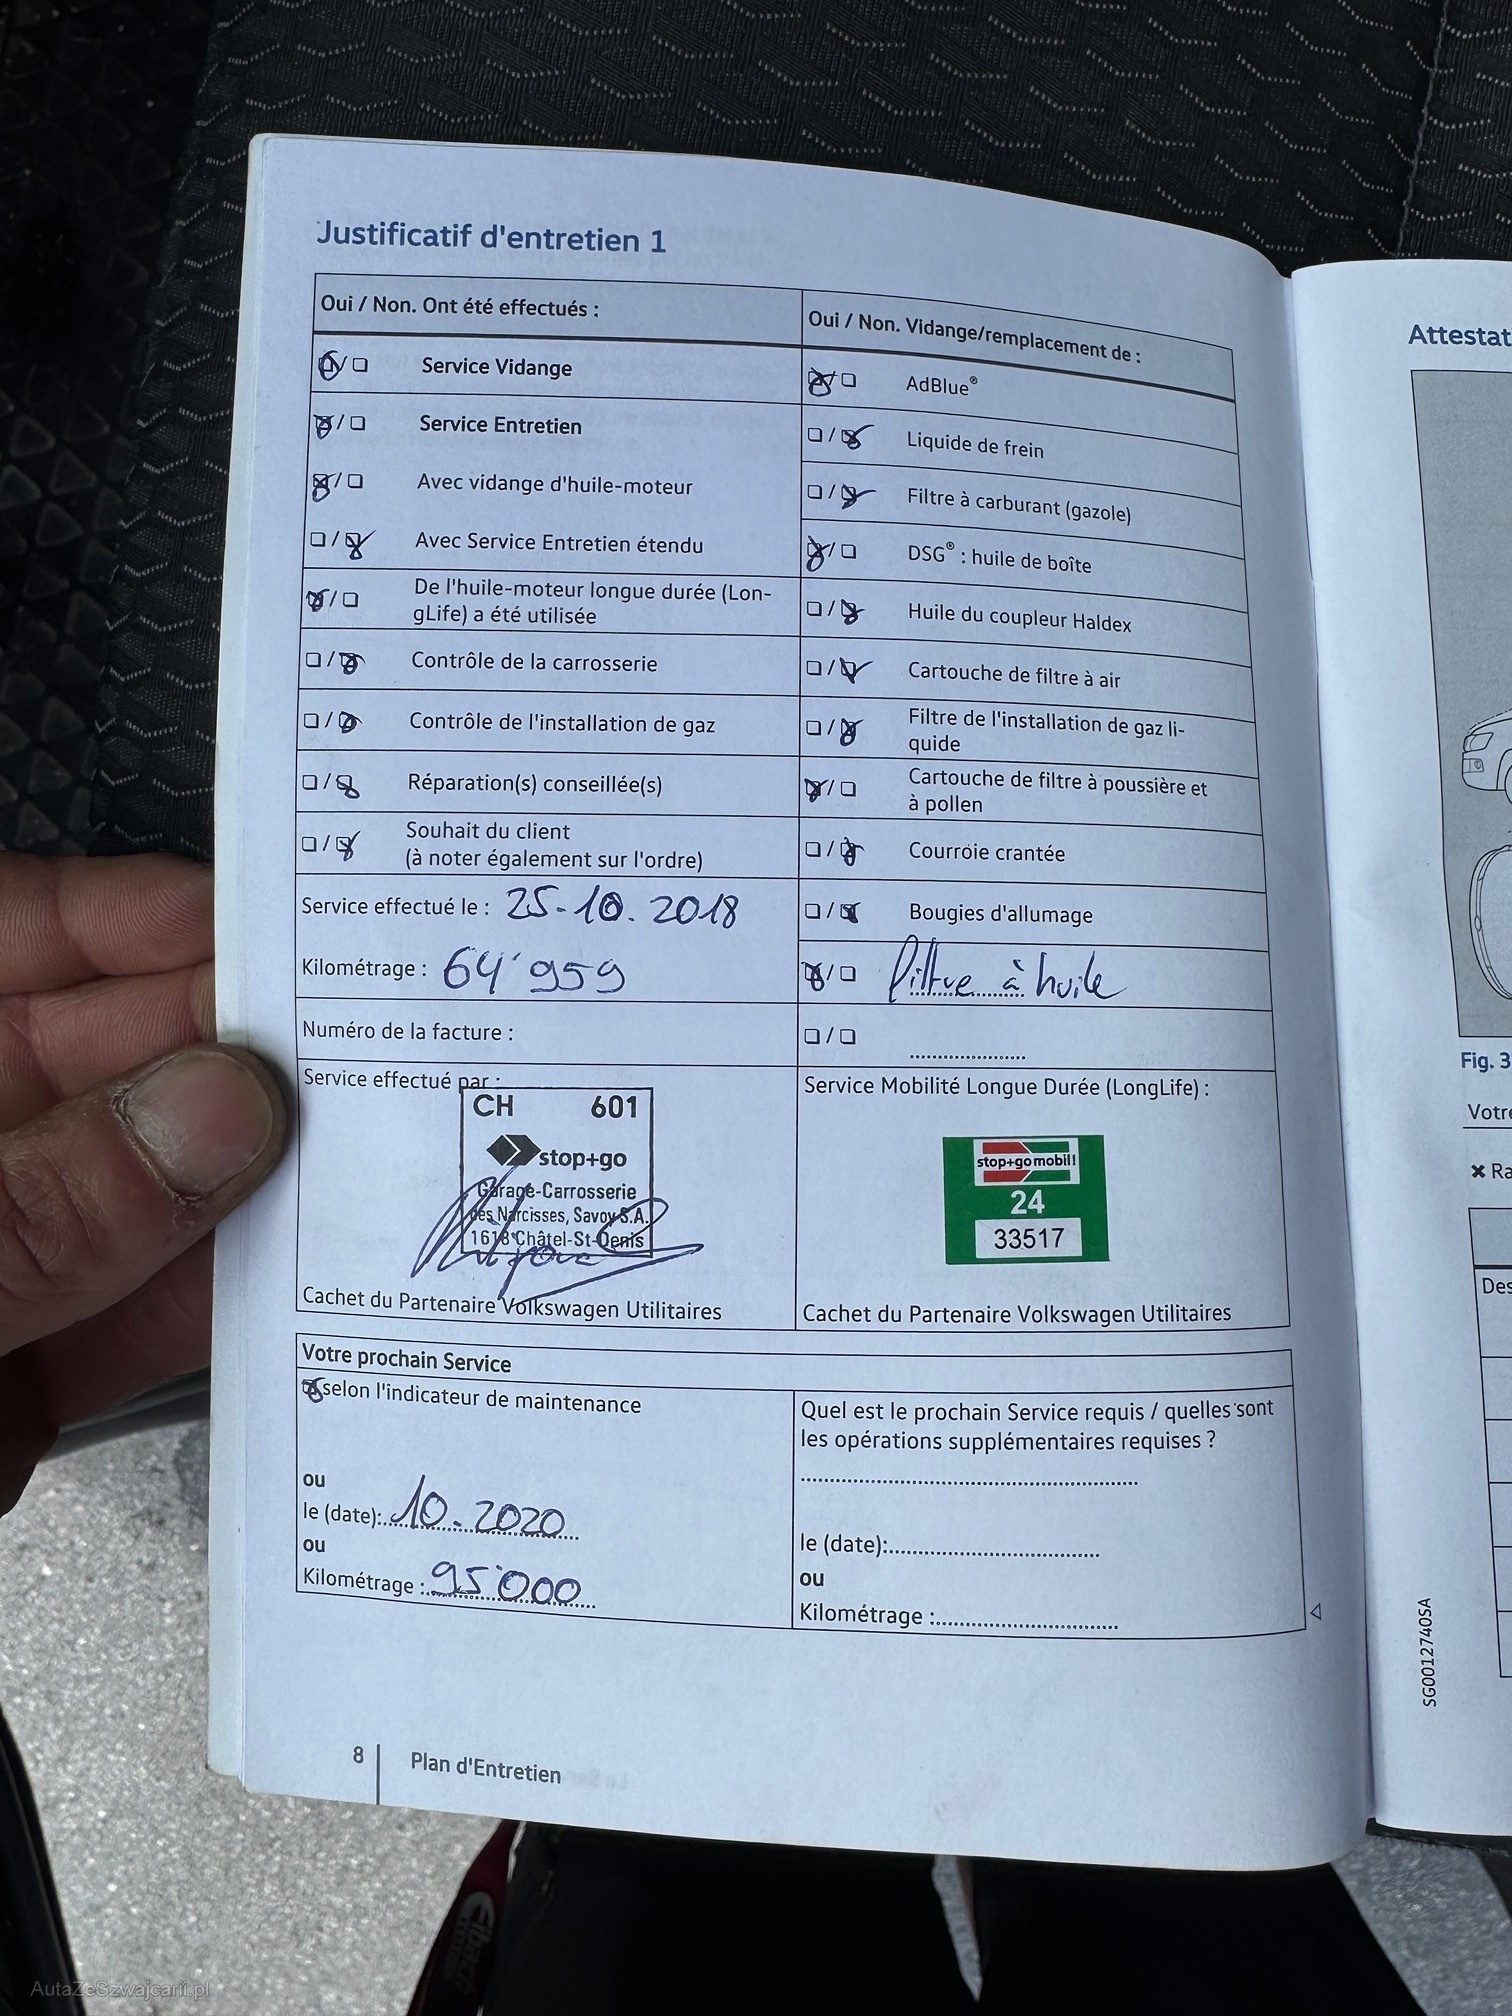 Justificatif d'entretien 1
Oui / Non. Ont été effectués :
☒/☐ Service Vidange
☒/☐ Service Entretien
☒/☐ Avec vidange d'huile-moteur
☐/☒ Avec Service Entretien étendu
☒/☐ De l'huile-moteur longue durée (Lon-
gLife) a été utilisée
☐/☒ Contrôle de la carrosserie
☐/☒ Contrôle de l'installation de gaz
☐/☒ Réparation(s) conseillée(s)
☐/☒ Souhait du client
(à noter également sur l'ordre)
Service effectué le : 25-10.2018
Kilométrage : 64'959
Numéro de la facture :
Service effectué par :
CH 601
stop+go
Garage-Carrosserie
des Narcisses, Savoy S.A.
1618 Châtel-St-Denis
Cachet du Partenaire Volkswagen Utilitaires
Oui / Non. Vidange/remplacement de :
☒/☐ AdBlue®
☐/☒ Liquide de frein
☐/☒ Filtre à carburant (gazole)
☒/☐ DSG® : huile de boîte
☐/☒ Huile du coupleur Haldex
☐/☒ Cartouche de filtre à air
☐/☒ Filtre de l'installation de gaz li-
quide
☒/☐ Cartouche de filtre à poussière et
à pollen
☐/☒ Courroie crantée
☐/☒ Bougies d'allumage
☒/☐ filtre à huile
☐/☐ ....................
Service Mobilité Longue Durée (LongLife) :
stop+go mobil!
24
33517
Cachet du Partenaire Volkswagen Utilitaires
Votre prochain Service
☒ selon l'indicateur de maintenance
ou
le (date): 10.2020
ou
Kilométrage : 95'000
Quel est le prochain Service requis / quelles sont
les opérations supplémentaires requises ?
le (date):
ou
Kilométrage :
8 Plan d'Entretien
Attestat
Fig. 3
Votre
✖ Ra
Des
SG0012740SA
AutaZeSzwajcarii.pl